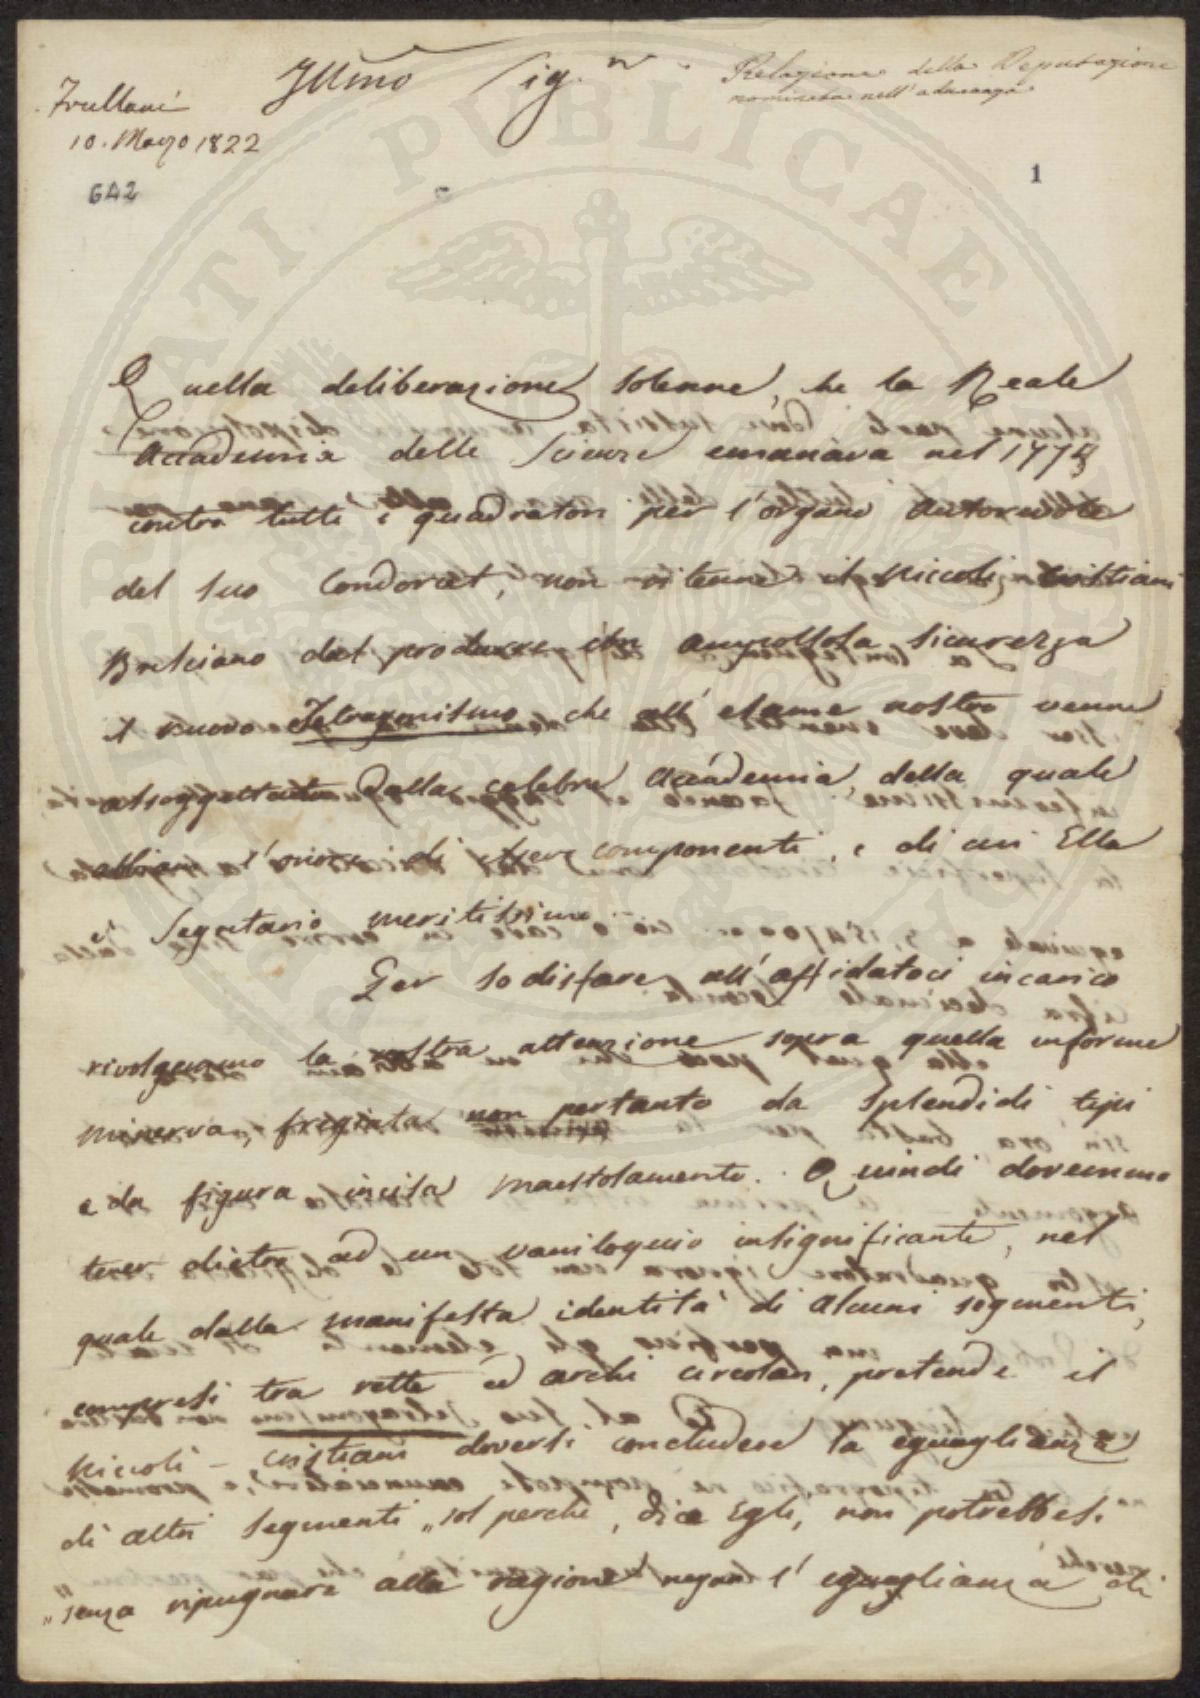 Illmo Sig.r
Relazione della Deputazione
nominata nell'adunanza
Frullani
10. Marzo 1822
642
1
Quella deliberazione solenne, che la Reale
Accademia delle Scienze emanava nel 1775
contro tutti i quadratori per l'organo autorevole
del suo Condorcet, non ritenne il Piccoli, Cristiani
Bresciano dal produrre con ampollosa sicurezza
il nuovo Tetragonismo che all'esame nostro venne
assoggettato dalla celebre Accademia, della quale
abbiam l'onore di essere componenti, e di cui Ella
è Segretario meritissimo
Per sodisfare all'affidatoci incarico
rivolgemmo la nostra attenzione sopra quella informe
minerva, fregiata non pertanto da splendidi tipi
e da figura incisa maestosamente. Quindi dovemmo
tener dietro ad un vaniloquio insignificante, nel
quale dalla manifesta identità di alcuni segmenti,
compresi tra rette ed archi circolari, pretende il
Piccoli - Cristiani doversi concludere la eguaglianza
di altri segmenti „sol perchè, dice Egli, non potrebbesi
„senza ripugnare alla ragione negar l'eguaglianza di